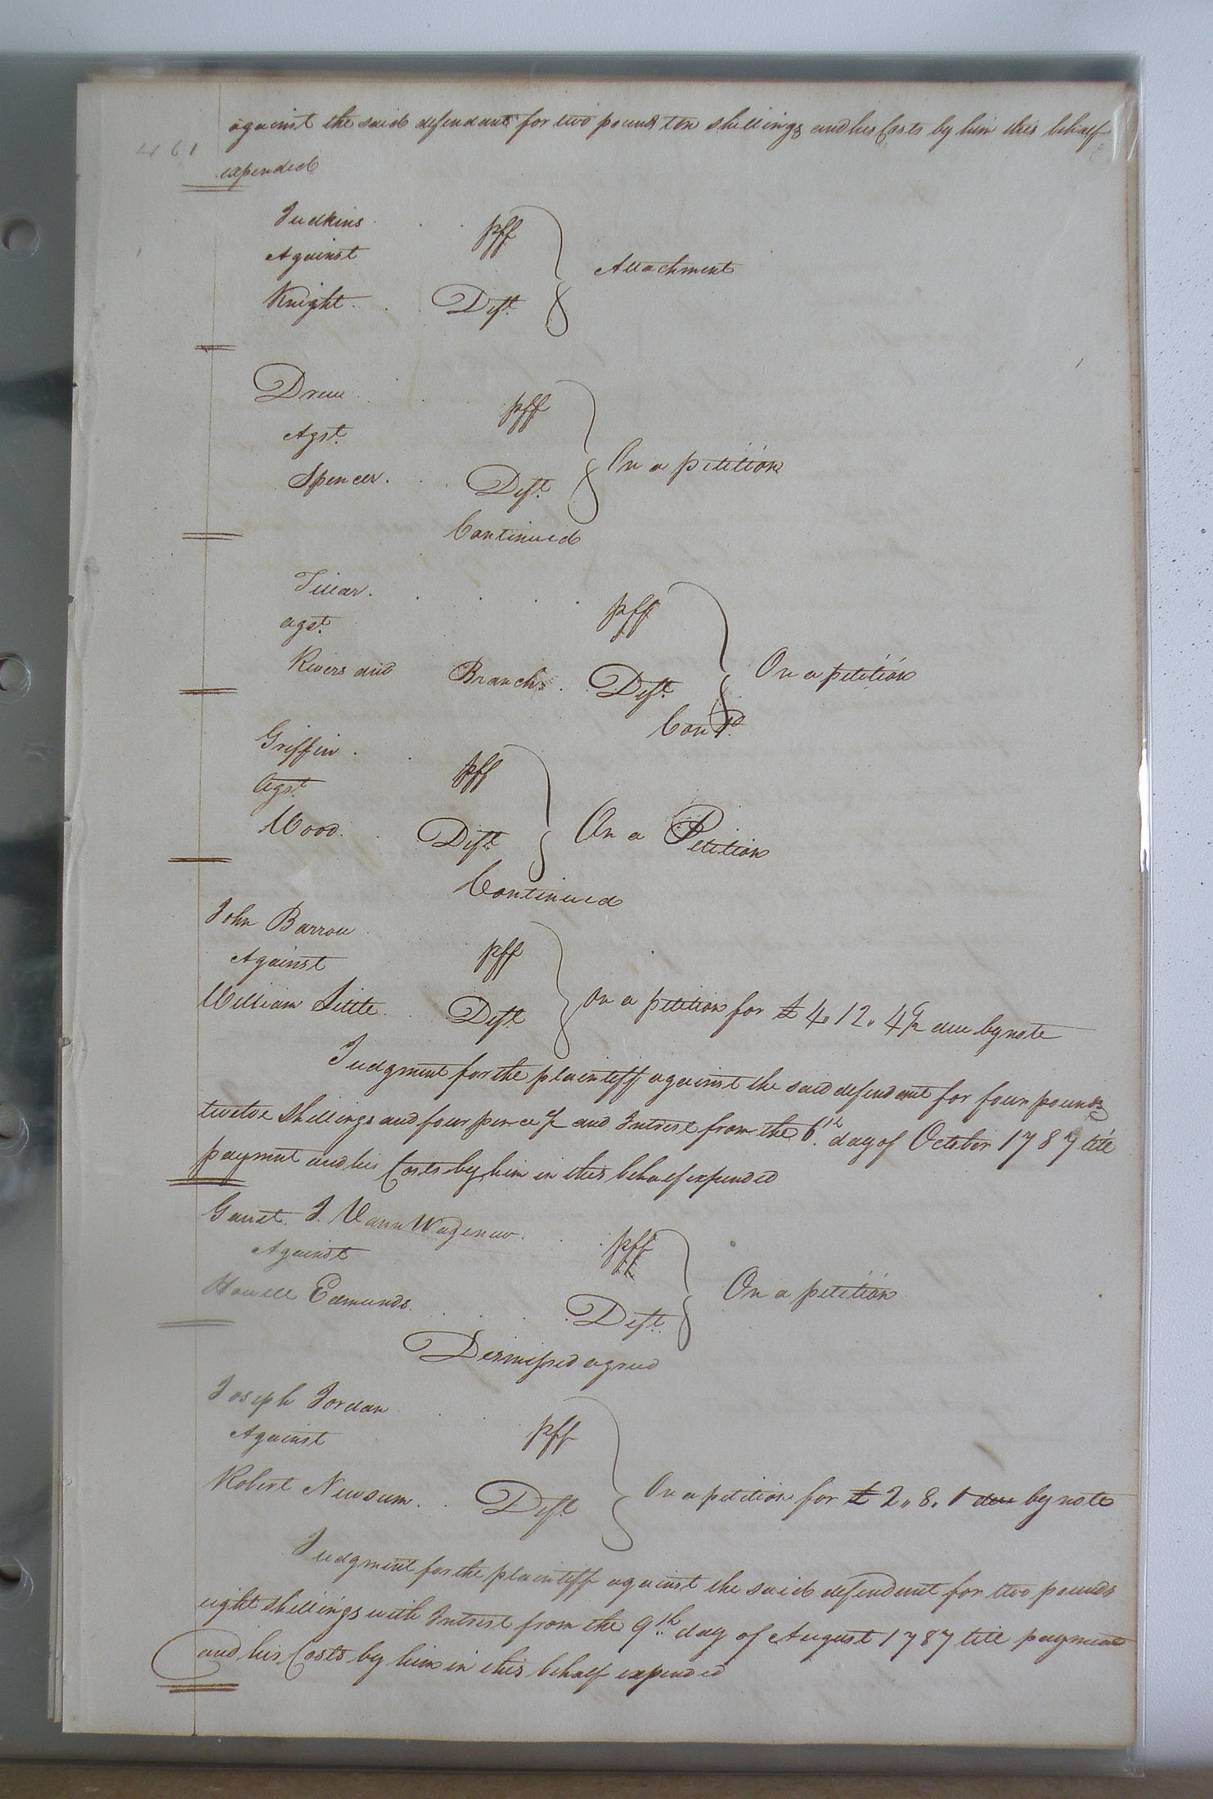 against the said defendant for two pound ten shillings and his Costs by him this behalf
461
expended
Judkins . . pff
Against
Attachment
Knight . . Deft.
Drew . . pff
Agst.
On a petition
Spencer . . Deft.
Continued
Tillar . . . . pff
agst.
On a petition
Rivers and Branch . . Deft.
Contd.
Griffin . . pff
Agst.
On a Petition
Wood . . Deft.
Continued
John Barrow pff
Against
On a petition for £ 4. 12. 4½ due by note
William Little . . Deft.
Judgment for the plaintiff against the said defendant for four pounds
twelve shillings and four pence ½ and Intrest from the 6th. day of October 1787 till
payment and his Costs by him in this behalf expended
Garret. J. Vann Wagenen . . pff
Against
On a petition
Howell Edmunds . . . Deft.
Dismissed agreed
Joseph Jordan . . pff
Against
On a petition for £ 2. 8. 0 due by note
Robert Newsum . . Deft.
Judgment for the plaintiff against the said defendant for two pounds
eight shillings with Intrest from the 9th. day of August 1787 till payment
and his Costs by him in this behalf expended